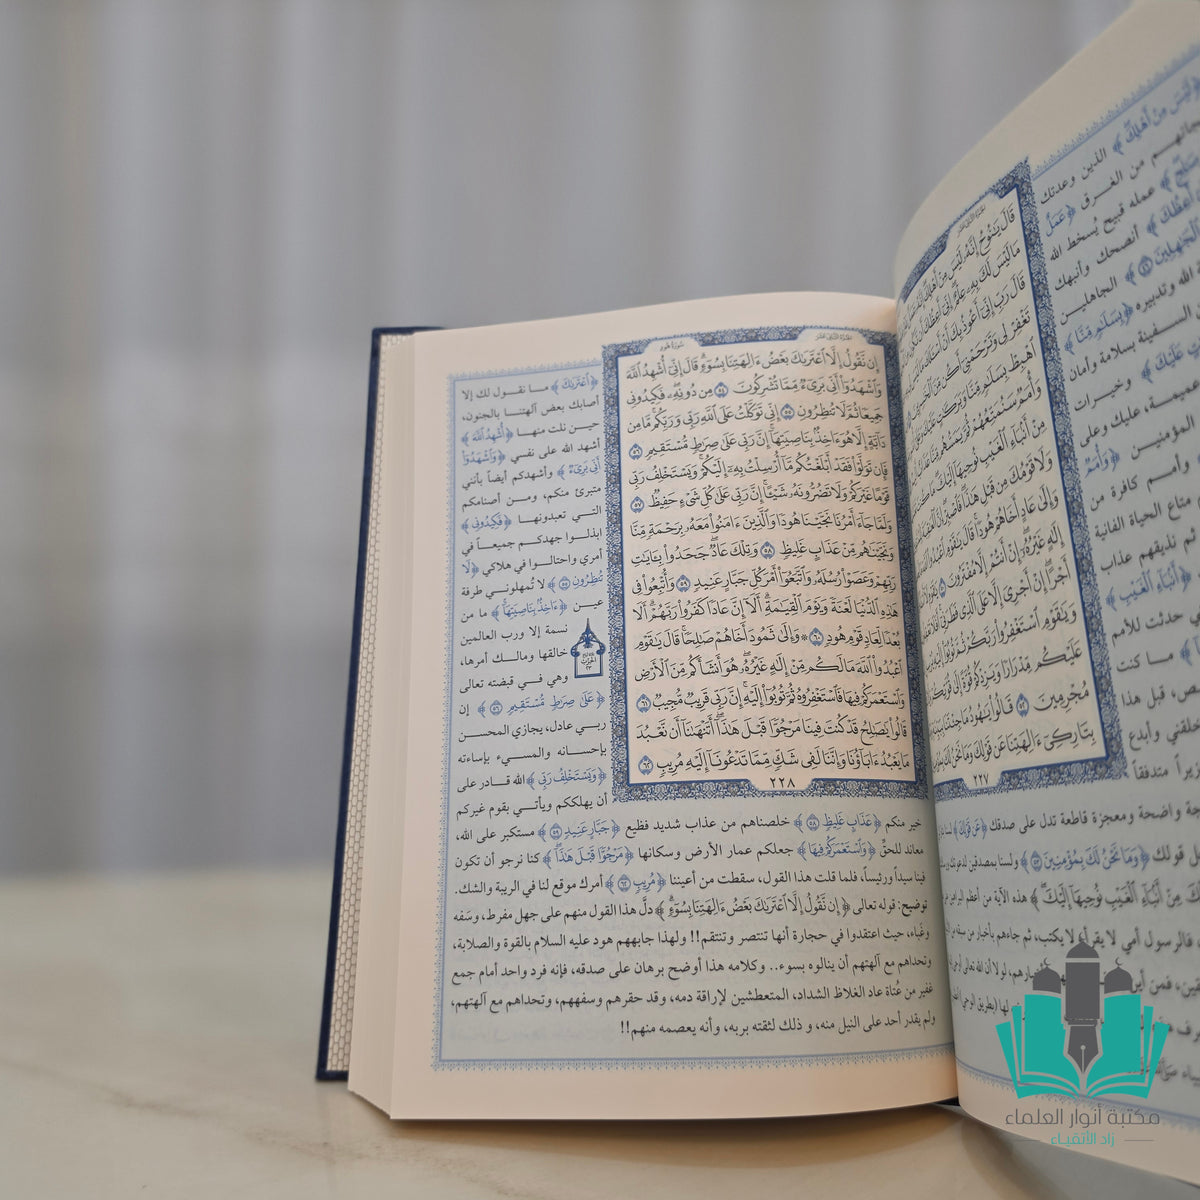 قَالَ يَنُوحُ إِنَّهُۥ لَيْسَ مِنْ أَهْلِكَ
مَا لَيْسَ لَكَ بِهِۦ عِلْمٌ إِنِّىٓ أَعِظُكَ
قَالَ رَبِّ إِنِّىٓ أَعُوذُ بِكَ أَنْ أَسْـَٔلَكَ
تَغْفِرْ لِى وَتَرْحَمْنِىٓ أَكُن مِّنَ
ٱهْبِطْ بِسَلَٰمٍ مِّنَّا وَبَرَكَٰتٍ عَلَيْكَ
وَأُمَمٌ سَنُمَتِّعُهُمْ ثُمَّ يَمَسُّهُم
مِنْ أَنۢبَآءِ ٱلْغَيْبِ نُوحِيهَآ إِلَيْكَ
وَلَا قَوْمُكَ مِن قَبْلِ هَٰذَا فَٱصْبِرْ
وَإِلَىٰ عَادٍ أَخَاهُمْ هُودًا قَالَ يَٰقَوْمِ
إِلَٰهٍ غَيْرُهُۥٓ إِنْ أَنتُمْ إِلَّا مُفْتَرُونَ
أَجْرًا إِنْ أَجْرِىَ إِلَّا عَلَى ٱلَّذِى فَطَرَنِىٓ
وَيَٰقَوْمِ ٱسْتَغْفِرُوا۟ رَبَّكُمْ ثُمَّ تُوبُوٓا۟ إِلَيْهِ
عَلَيْكُم مِّدْرَارًا وَيَزِدْكُمْ قُوَّةً إِلَىٰ قُوَّتِكُمْ
مُجْرِمِينَ ٥٢ قَالُوا۟ يَٰهُودُ مَا جِئْتَنَا
بِتَارِكِىٓ ءَالِهَتِنَا عَن قَوْلِكَ وَمَا نَحْنُ لَكَ
٢٢٧
لَيْسَ مِنْ أَهْلِكَ ﴾ الذين وعدتك
من الغرق ﴿ عَمَلٌ
عمله قبيح يُسخط الله
أَعِظُكَ ﴾ أنصحك وأنبهك
ٱلْجَٰهِلِينَ ٤٦ ﴾ الجاهلين
الله وتدبيره ﴿ بِسَلَٰمٍ مِّنَّا ﴾
السفينة بسلامة وأمان
عَلَيْكَ ﴾ وخيرات
عليك وعلى
المؤمنين ﴿ وَأُمَمٌ
وأمم كافرة من
متاع الحياة الفانية
ثم نذيقهم عذاب
﴿ أَنۢبَآءِ ٱلْغَيْبِ ﴾
حدثت للأمم
ما كنت
قبل هذا
خلقني وأبدع
متدفقاً
واضحة ومعجزة قاطعة تدل على صدقك ﴿ عَن قَوْلِكَ ﴾
قولك ﴿ وَمَا نَحْنُ لَكَ بِمُؤْمِنِينَ ٥٣ ﴾ ولسنا بمصدقين
مِنْ أَنۢبَآءِ ٱلْغَيْبِ نُوحِيهَآ إِلَيْكَ ﴾ هذه الآية من أعظم
فالرسول أمي لا يقرأ ولا يكتب، ثم جاءهم بأخبار من
سورة هود
الجزء الثاني عشر
إِن نَّقُولُ إِلَّا ٱعْتَرَىٰكَ بَعْضُ ءَالِهَتِنَا بِسُوٓءٍ قَالَ إِنِّىٓ أُشْهِدُ ٱللَّهَ
وَٱشْهَدُوٓا۟ أَنِّى بَرِىٓءٌ مِّمَّا تُشْرِكُونَ ٥٤ مِن دُونِهِۦ فَكِيدُونِى
جَمِيعًا ثُمَّ لَا تُنظِرُونِ ٥٥ إِنِّى تَوَكَّلْتُ عَلَى ٱللَّهِ رَبِّى وَرَبِّكُم مَّا مِن
دَآبَّةٍ إِلَّا هُوَ ءَاخِذٌۢ بِنَاصِيَتِهَآ إِنَّ رَبِّى عَلَىٰ صِرَٰطٍ مُّسْتَقِيمٍ ٥٦
فَإِن تَوَلَّوْا۟ فَقَدْ أَبْلَغْتُكُم مَّآ أُرْسِلْتُ بِهِۦٓ إِلَيْكُمْ وَيَسْتَخْلِفُ رَبِّى
قَوْمًا غَيْرَكُمْ وَلَا تَضُرُّونَهُۥ شَيْـًٔا إِنَّ رَبِّى عَلَىٰ كُلِّ شَىْءٍ حَفِيظٌ ٥٧
وَلَمَّا جَآءَ أَمْرُنَا نَجَّيْنَا هُودًا وَٱلَّذِينَ ءَامَنُوا۟ مَعَهُۥ بِرَحْمَةٍ مِّنَّا
وَنَجَّيْنَٰهُم مِّنْ عَذَابٍ غَلِيظٍ ٥٨ وَتِلْكَ عَادٌ جَحَدُوا۟ بِـَٔايَٰتِ
رَبِّهِمْ وَعَصَوْا۟ رُسُلَهُۥ وَٱتَّبَعُوٓا۟ أَمْرَ كُلِّ جَبَّارٍ عَنِيدٍ ٥٩ وَأُتْبِعُوا۟ فِى
هَٰذِهِ ٱلدُّنْيَا لَعْنَةً وَيَوْمَ ٱلْقِيَٰمَةِ أَلَآ إِنَّ عَادًا كَفَرُوا۟ رَبَّهُمْ أَلَا
بُعْدًا لِّعَادٍ قَوْمِ هُودٍ ٦٠ ۞ وَإِلَىٰ ثَمُودَ أَخَاهُمْ صَٰلِحًا قَالَ يَٰقَوْمِ
ٱعْبُدُوا۟ ٱللَّهَ مَا لَكُم مِّنْ إِلَٰهٍ غَيْرُهُۥ هُوَ أَنشَأَكُم مِّنَ ٱلْأَرْضِ
وَٱسْتَعْمَرَكُمْ فِيهَا فَٱسْتَغْفِرُوهُ ثُمَّ تُوبُوٓا۟ إِلَيْهِ إِنَّ رَبِّى قَرِيبٌ مُّجِيبٌ ٦١
قَالُوا۟ يَٰصَٰلِحُ قَدْ كُنتَ فِينَا مَرْجُوًّا قَبْلَ هَٰذَآ أَتَنْهَىٰنَآ أَن نَّعْبُدَ
مَا يَعْبُدُ ءَابَآؤُنَا وَإِنَّنَا لَفِى شَكٍّ مِّمَّا تَدْعُونَآ إِلَيْهِ مُرِيبٍ ٦٢
٢٢٨
﴿ ٱعْتَرَىٰكَ ﴾ ما نقول لك إلا
أصابك بعض آلهتنا بالجنون،
حين نلت منها ﴿ أُشْهِدُ ٱللَّهَ ﴾
أشهد الله على نفسي ﴿ وَٱشْهَدُوٓا۟
أَنِّى بَرِىٓءٌ ﴾ وأشهدكم أيضاً بأنني
متبرئ منكم، ومن أصنامكم
التي تعبدونها ﴿ فَكِيدُونِى ﴾
ابذلوا جهدكم جميعاً في
أمري واحتالوا في هلاكي ﴿ لَا
تُنظِرُونِ ٥٥ ﴾ لا تُمهلوني طرفة
عين ﴿ ءَاخِذٌۢ بِنَاصِيَتِهَآ ﴾ ما من
نسمة إلا ورب العالمين
خالقها ومالك أمرها،
وهي في قبضته تعالى
﴿ عَلَىٰ صِرَٰطٍ مُّسْتَقِيمٍ ٥٦ ﴾ إن
ربي عادل، يجازي المحسن
بإحسانه والمسيء بإساءته
﴿ وَيَسْتَخْلِفُ رَبِّى ﴾ الله قادر على
أن يهلككم ويأتي بقوم غيركم
خير منكم ﴿ عَذَابٍ غَلِيظٍ ٥٨ ﴾ خلصناهم من عذاب شديد فظيع ﴿ جَبَّارٍ عَنِيدٍ ٥٩ ﴾ مستكبر على الله،
معاند للحقِّ ﴿ وَٱسْتَعْمَرَكُمْ فِيهَا ﴾ جعلكم عمار الأرض وسكانها ﴿ مَرْجُوًّا قَبْلَ هَٰذَآ ﴾ كنا نرجو أن تكون
فينا سيداً ورئيساً، فلما قلت هذا القول، سقطت من أعيننا ﴿ مُرِيبٍ ٦٢ ﴾ أمرك موقع لنا في الريبة والشك.
توضيح: قوله تعالى ﴿ إِن نَّقُولُ إِلَّا ٱعْتَرَىٰكَ بَعْضُ ءَالِهَتِنَا بِسُوٓءٍ ﴾ دلَّ هذا القول منهم على جهل مفرط، وسَفه
وغَباء، حيث اعتقدوا في حجارة أنها تنتصر وتنتقم!! ولهذا جابههم هود عليه السلام بالقوة والصلابة،
وتحداهم مع آلهتهم أن ينالوه بسوء.. وكلامه هذا أوضح برهان على صدقه، فإنه فرد واحد أمام جمع
غفير من عُتاة عاد الغلاظ الشداد، المتعطشين لإراقة دمه، وقد حقرهم وسفههم، وتحداهم مع آلهتهم،
ولم يقدر أحد على النيل منه، و ذلك لثقته بربه، وأنه يعصمه منهم!!
مكتبة أنوار العلماء
زاد الأتقياء